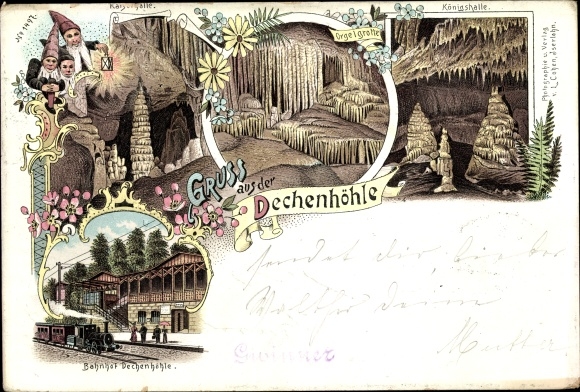 No 1497.
Kaiserhalle.
Orgelgrotte
Königshalle.
Photographie u. Verlag
v. L. Cohen, Iserlohn.
GRUSS
aus der
Dechenhöhle
sendet dir lieber
deine
Mutter
Bahnhof Dechenhöhle.